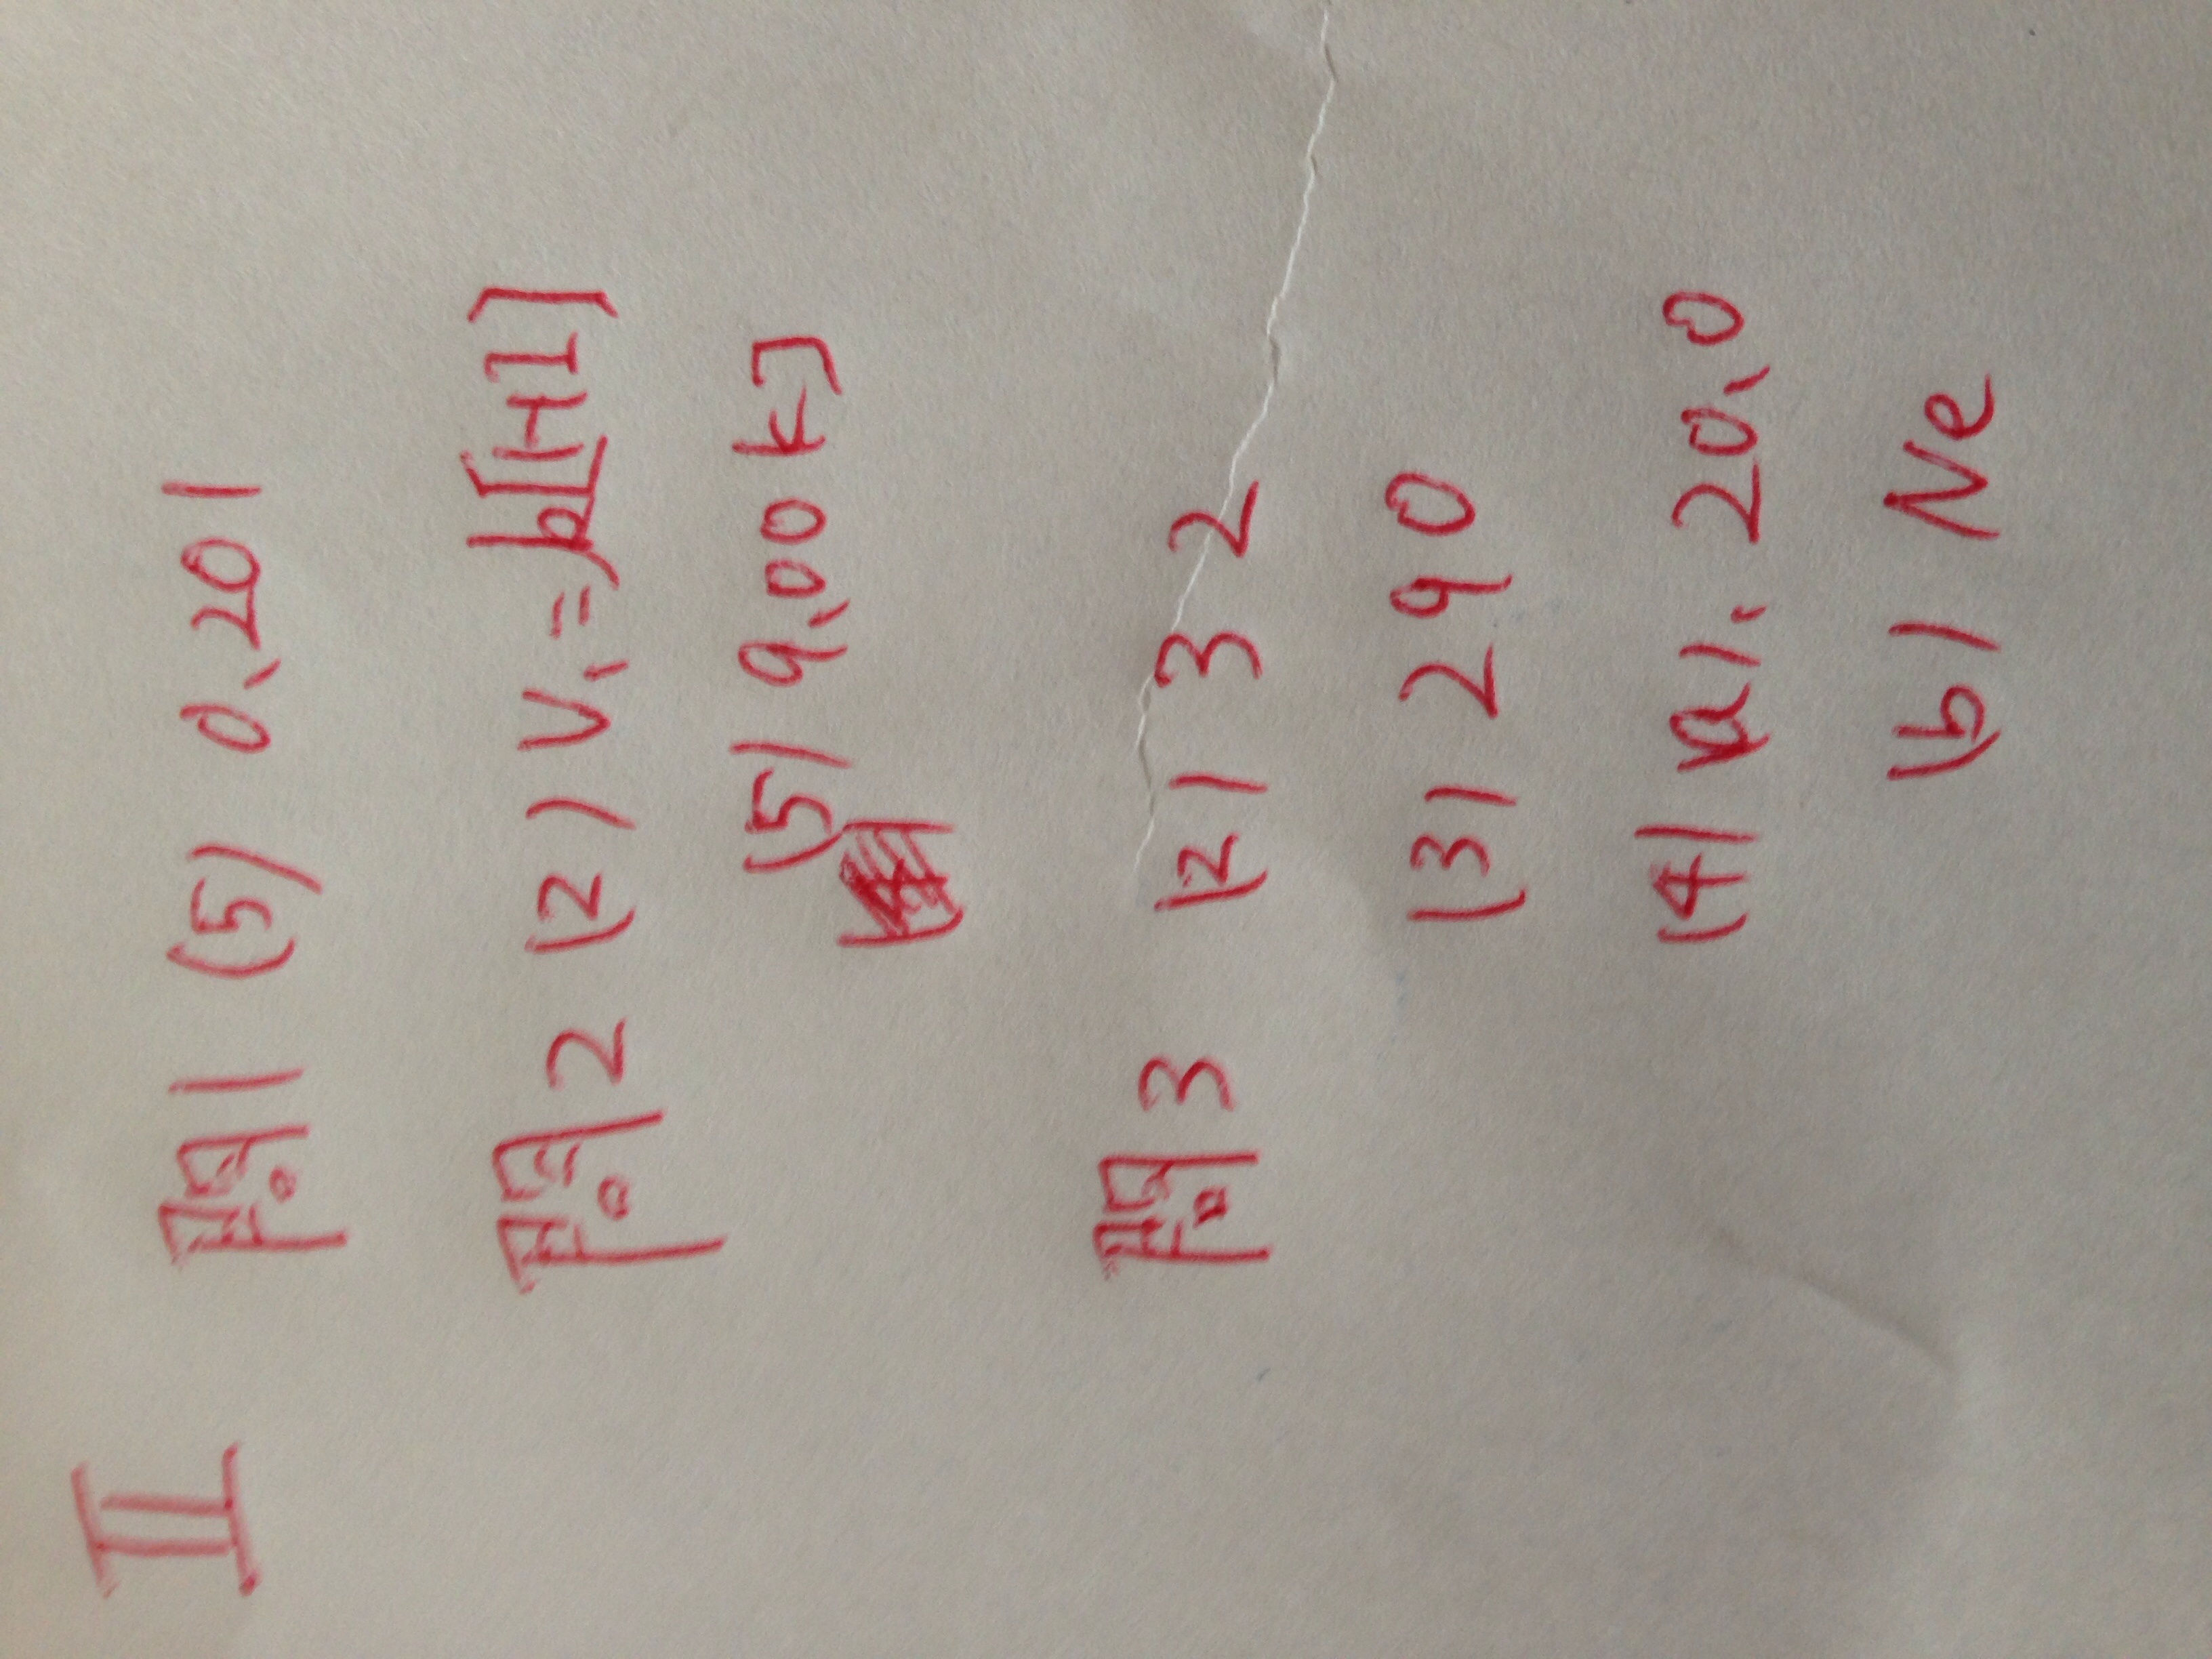 II
問1 (5) 0.201
問2 (2) V1=k[HI]
(5) 9.00kJ
問3 (2) 32
(3) 290
(4) (a). 20.0
(b) Ne